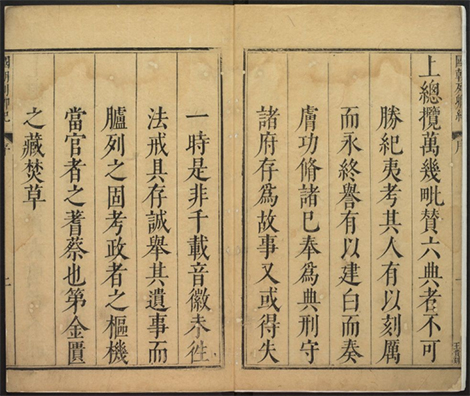 國朝列卿紀
上總攬萬幾毗賛六典者不可
勝紀夷考其人有以刻厲
而永終譽有以建白而奏
膚功脩諸已奉爲典刑守
諸府存爲故事又或得失
一時是非千載音徽未徃
法戒具存誠舉其遺事而
臚列之固考政者之樞機
當官者之蓍蔡也第金匱
之藏焚草